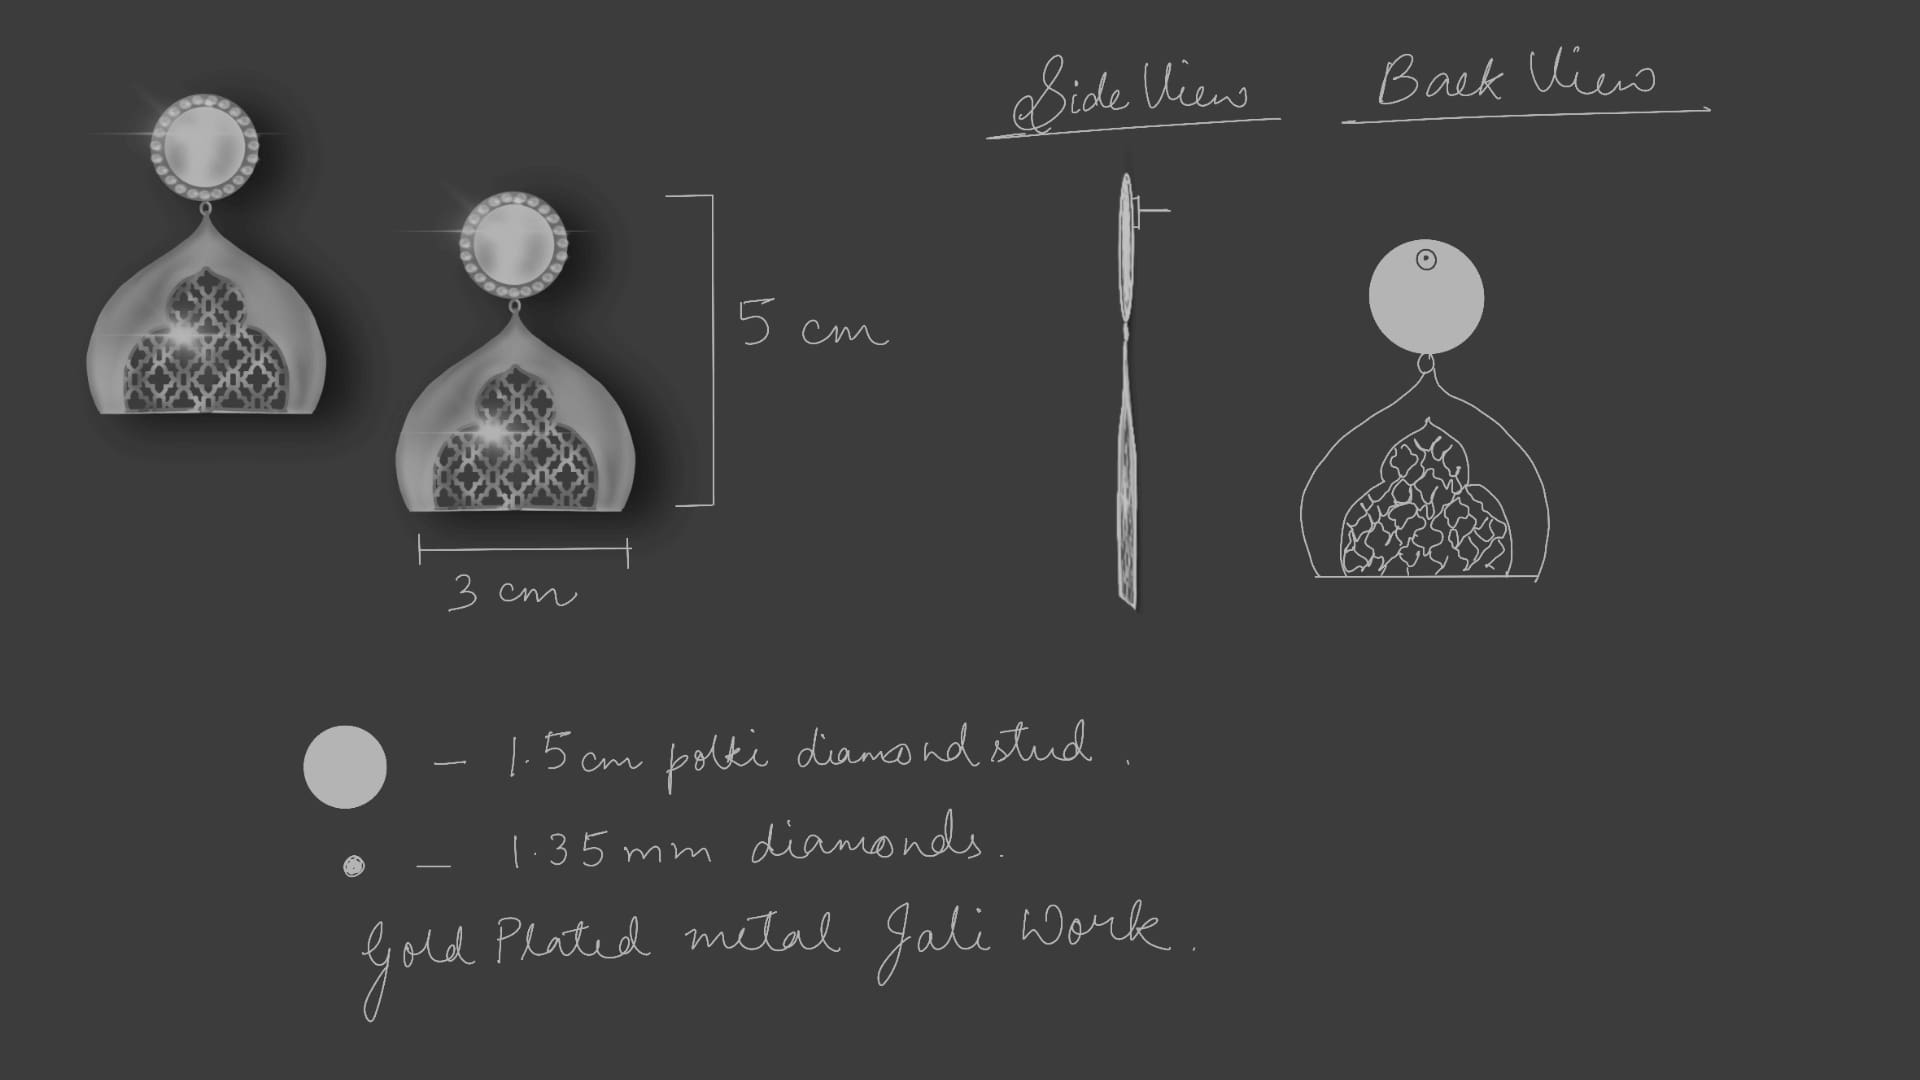 Side View
Back View
5 cm
3 cm
- 1.5cm polki diamond stud.
- 1.35mm diamonds.
Gold Plated metal Jali Work.